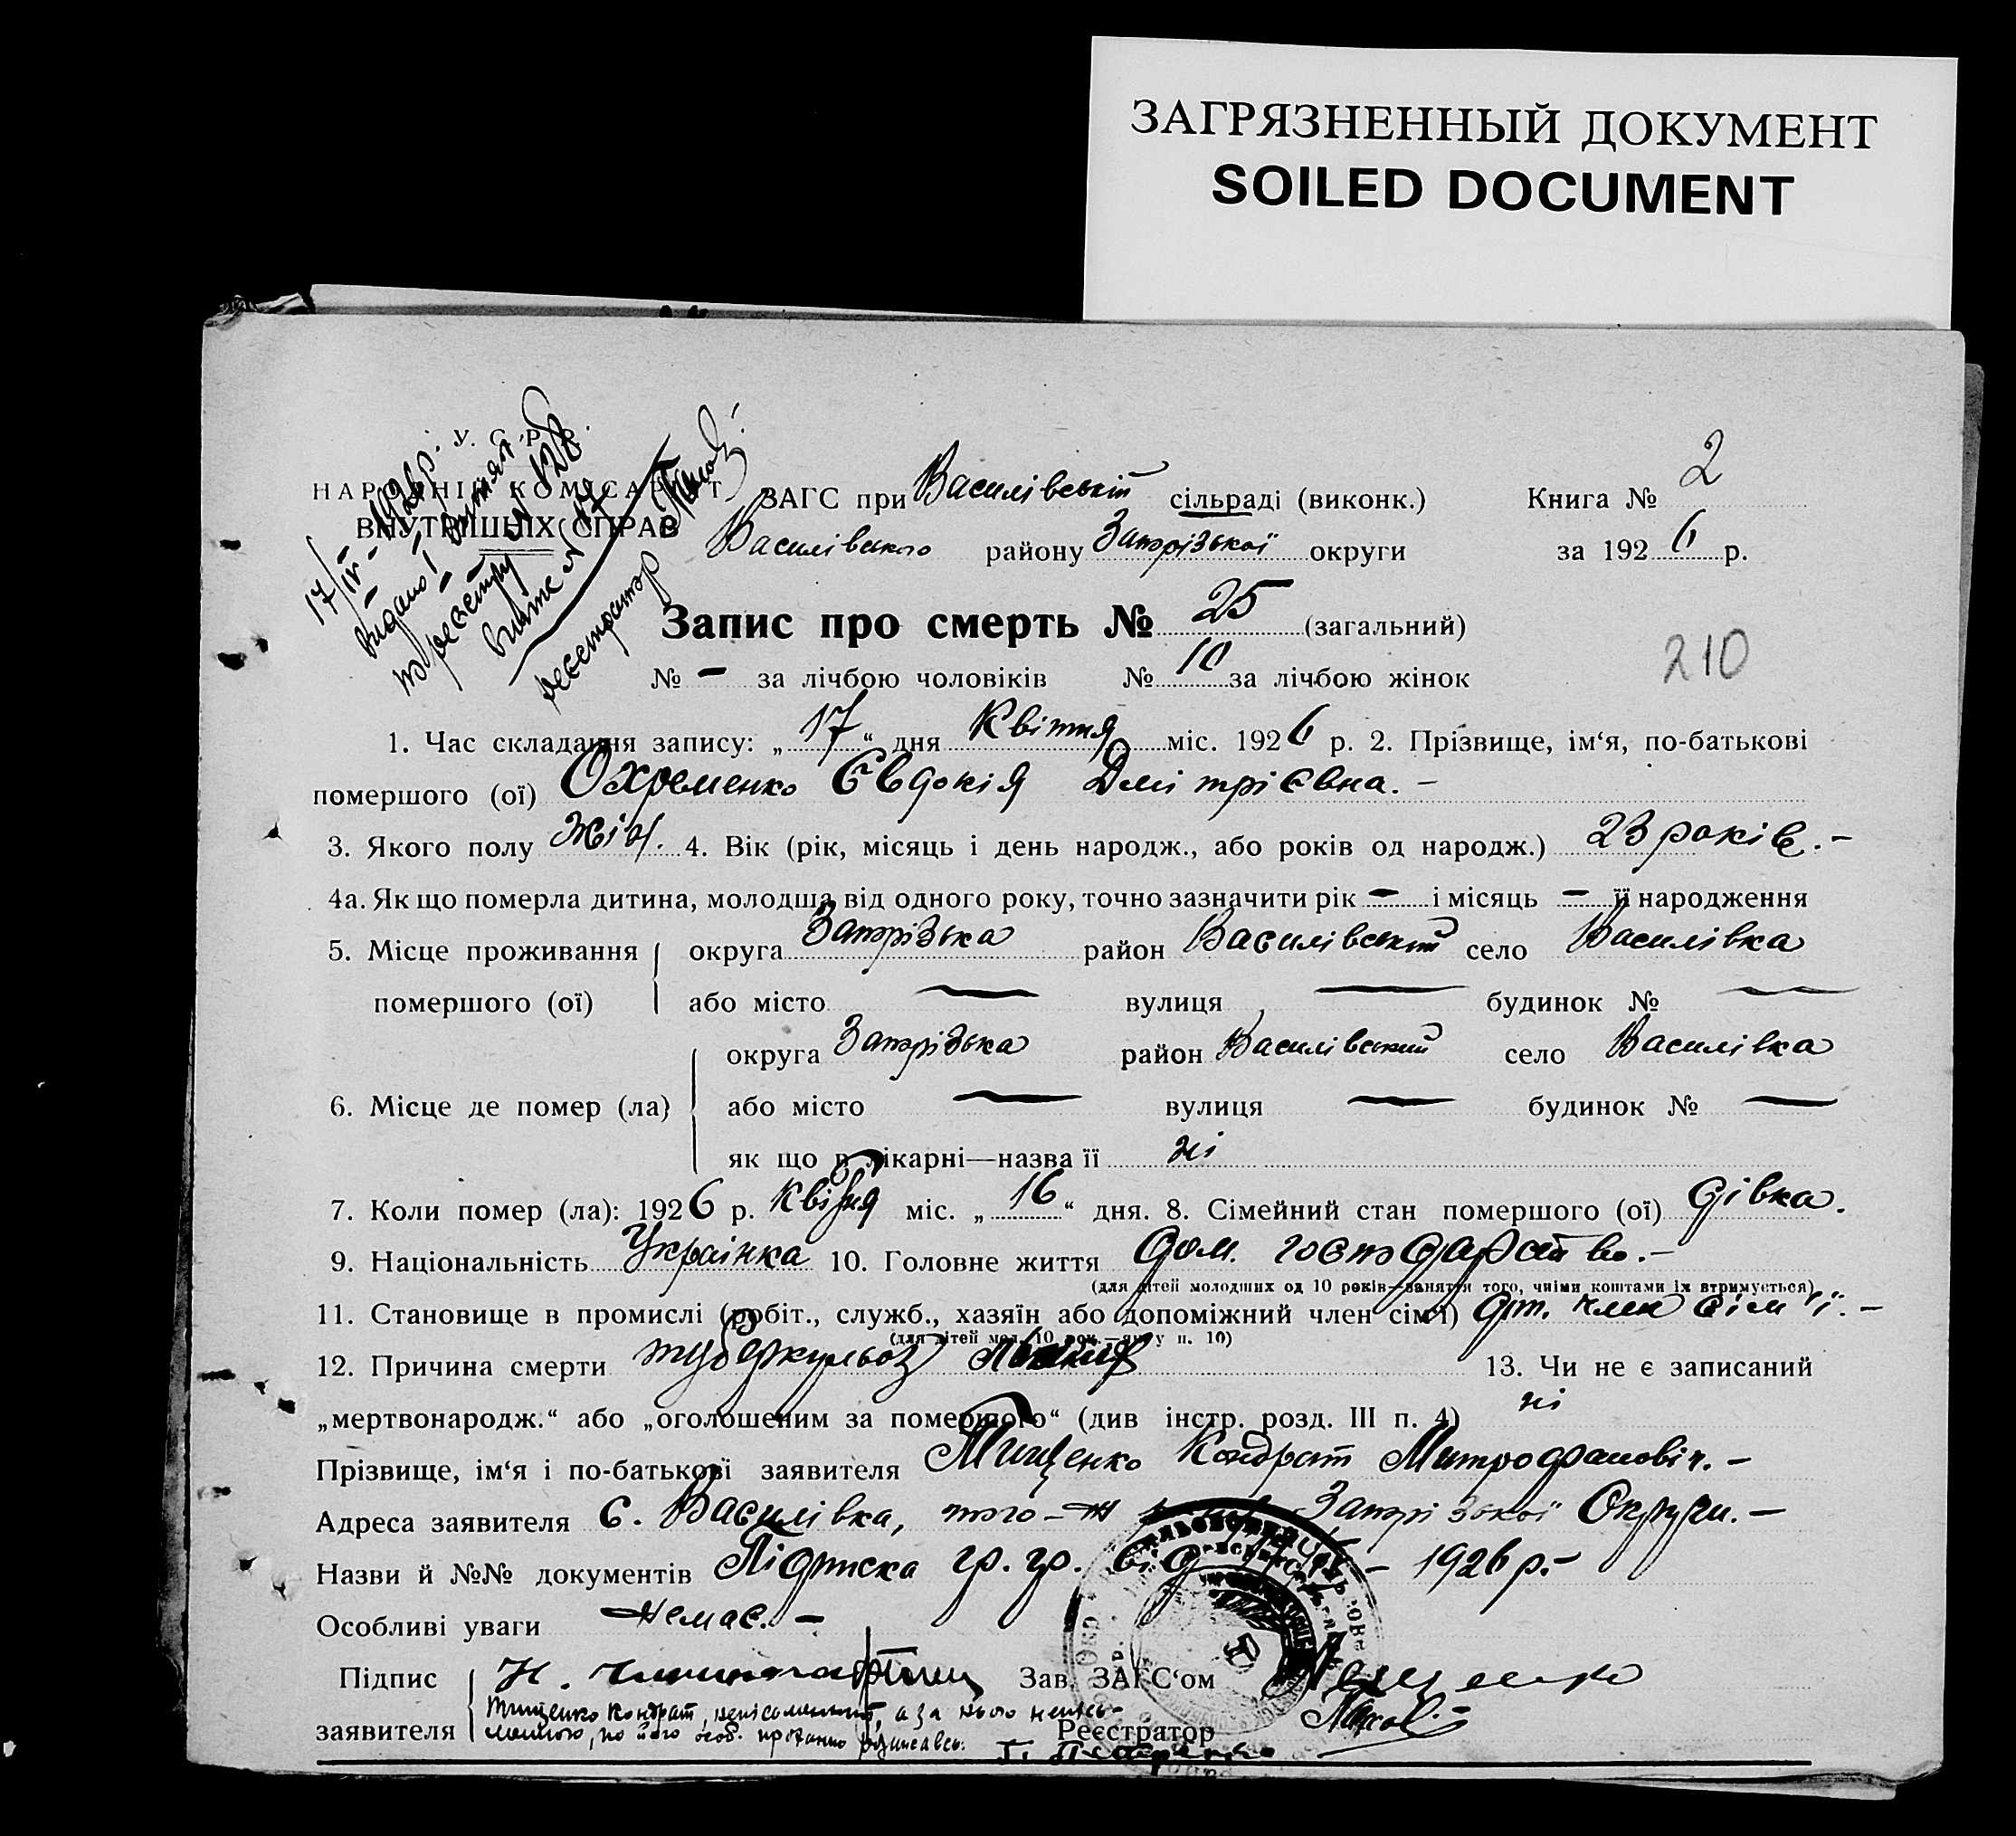 ЗАГРЯЗНЕННЫЙ ДОКУМЕНТ
SOILED DOCUMENT
У. С. Р. Р.
НАРОДНІЙ КОМІСАРІЯТ
ВНУТРІШНІХ СПРАВ
17/IV-1926р.
видано витяг
по реєстру № 128
реєстратор
ЗАГС при Василівській сільраді (виконк.) Книга № 2
Василівського району Запорізької округи за 1926 р.
Запис про смерть № 25 (загальний)
210
№ – за лічбою чоловіків № 10 за лічбою жінок
1. Час складання запису: „17“ дня Квітня міс. 1926 р. 2. Прізвище, ім‘я, по-батькові
помершого (ої) Охременко Євдокія Дмітрієвна. –
3. Якого полу жін. 4. Вік (рік, місяць і день народж., або років од народж.) 23 років. –
4а. Як що померла дитина, молодша від одного року, точно зазначити рік – і місяць – її народження
5. Місце проживання округа Запорізька район Василівський село Василівка
помершого (ої) або місто — вулиця — будинок № —
округа Запорізька район Василівський село Василівка
6. Місце де помер (ла) або місто — вулиця — будинок № —
як що в лікарні—назва її ні
7. Коли помер (ла): 1926 р. Квітня міс. „16“ дня. 8. Сімейний стан помершого (ої) дівка.
9. Національність Українка 10. Головне життя дом. господарство. –
(для дітей молодших од 10 років—заняття того, чиїми коштами їх втримується)
11. Становище в промислі (робіт., служб., хазяїн або допоміжний член сім‘ї) доп. член сім'ї. –
(для дітей мол. 10 рок.—як у п. 10)
12. Причина смерти туберкульоз 13. Чи не є записаний
„мертвонародж.“ або „оголошеним за помершого“ (див інстр. розд. III п. 4) ні
Прізвище, ім‘я і по-батькові заявителя Тищенко Кондрат Митрофановіч. –
Адреса заявителя с. Василівка, того-ж Запорізької Округи. –
Назви й №№ документів Підписка гр. гр. від 1926 р. –
Особливі уваги немає. –
Підпис Зав. ЗАГС‘ом
Тищенко Кондрат, неписьменний, а за нього непись-
заявителя менного, по його особ. проханню підписавсь. Реєстратор